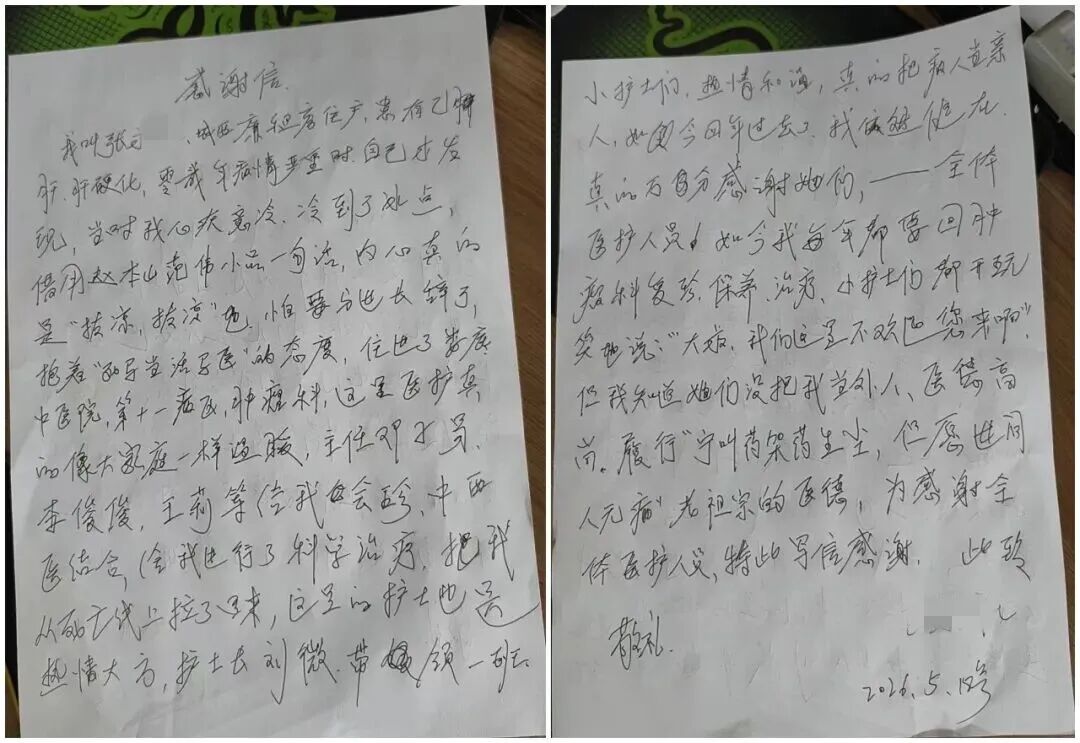 感谢信
我叫张 城西廉租房住户,患有乙肝
肝硬化,零 年病情严重时自己才发
现,当时我心疾意冷.冷到了冰点,
借用赵本山范伟小品一句话,内心真的
是"拔凉,拔凉"的,怕要与世长辞了,
抱着"死马当活马医"的态度,住进了娄底
中医院,第十一病区,肿瘤科,这里医护真
的像大家庭一样温暖,主任邓
李俊俊,王莉等给我 会珍,中西
医结合,给我进行了科学治疗.把我
从死亡线上拉了回来,这里的护士也是
热情大方,护士长刘微.带领一班
小护士们,热情和谐,真的把病人当亲
人,如今四年过去了,我依然健在.
真的万百分感谢她们,——全体
医护人员,如今我每年都要回肿
瘤科复珍.保养.治疗.小护士们都开玩
笑地说:"大姐,我们这里不欢迎您来啊",
但我知道她们没把我当外人,医德高
尚。履行"宁叫药架药生尘,但愿世间
人元病"老祖宗的医德,为感谢全
体医护人员,特此写信感谢. 此致
敬礼.
2026.5.12号